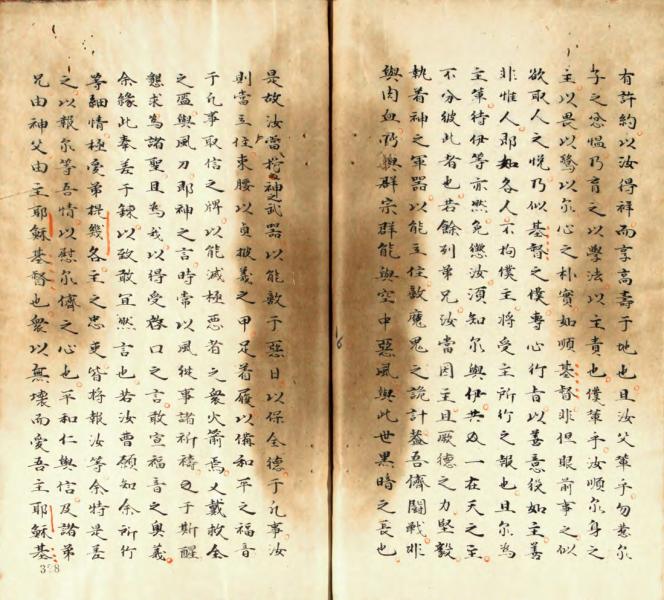 有許約以汝得祥而享高壽于地也且汝父輩乎勿惹尔
子之忿慍乃育之以學法以主責也僕輩乎汝順尔身之
主以畏以驚以尔心之朴實如順基督非但眼前事之似
欲取人之悅乃似基督之僕專心行旨以善意役如主善
非惟人即知各人不拘僕主將受主所行之報也且尔為
主輩待伊等亦然免懲汝須知尔與伊共一在天之主
不分彼此者也若餘列弟兄汝當因主且厥德之力堅毅
執着神之軍器以能主住敵魔鬼之詭計蓋吾儕鬪戰非
與肉血乃與群宗群能與空中惡風與此世黑暗之長也
是故汝當將神之武器以能敵于惡日以保全德于凡事汝
則當立住束腰以貞披義之甲足着履以備和平之福音
于凡事取信之牌以能滅極惡者之衆火箭焉又戴救全
之盔與風刀即神之言時常以風從事諸祈禱又于斯醒
懇求為諸聖且為我以得受啓口之言敢宣福音之奧義
余緣此奉差于鍊以致敢宜然言也若汝曹願知余所行
等細情極愛弟提幾各主之忠吏皆將報汝等余特是差
之以報尔等吾情以慰尔儕之心也平和仁與信及諸弟
兄由神父由主耶穌基督也衆以無壞而愛吾主耶穌基